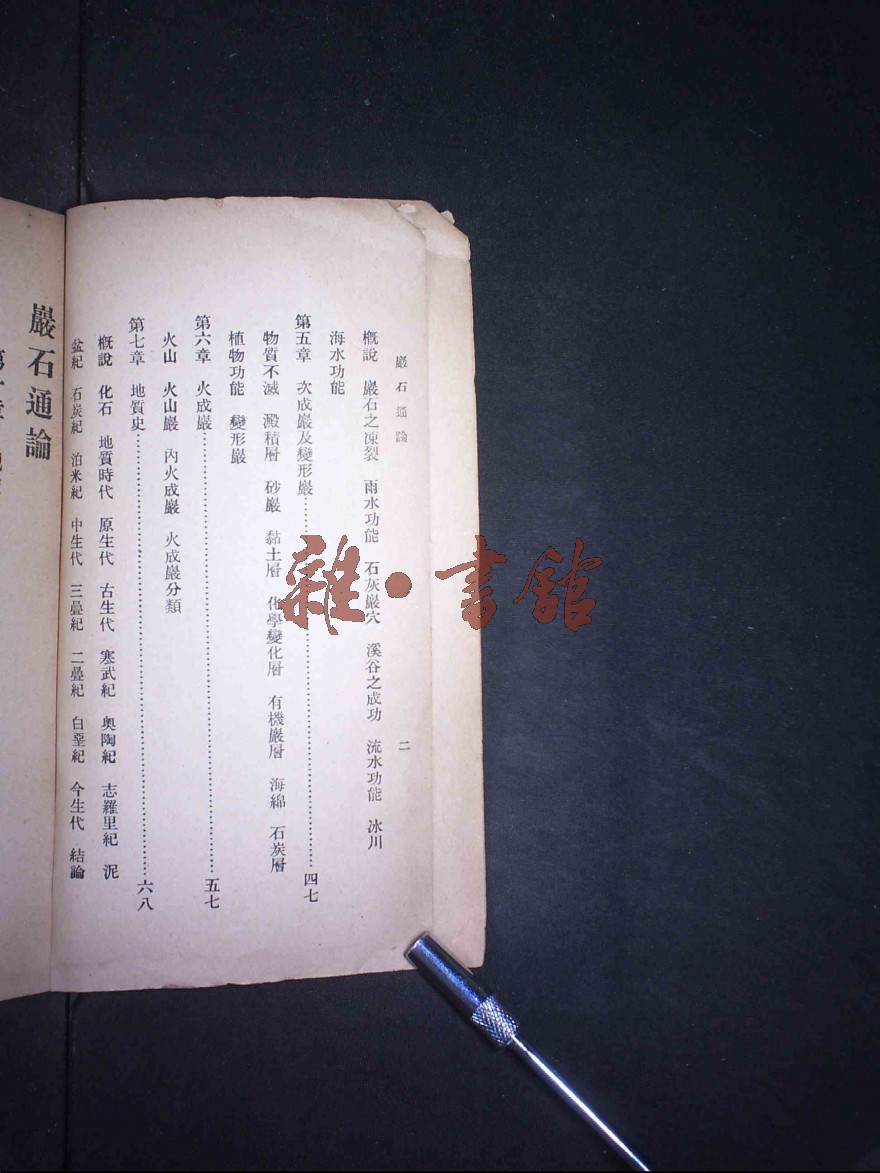 巖石通論
二
概說　巖石之凍裂　雨水功能　石灰巖穴　溪谷之成功　流水功能　冰川
海水功能
第五章　次成巖及變形巖……四七
物質不滅　澱積層　砂巖　黏土層　化學變化層　有機巖層　海綿　石炭層
植物功能　變形巖
第六章　火成巖……五七
火山　火山巖　內火成巖　火成巖分類
第七章　地質史……六八
概說　化石　地質時代　原生代　古生代　寒武紀　奧陶紀　志羅里紀　泥
盆紀　石炭紀　泊米紀　中生代　三疊紀　二疊紀　白堊紀　今生代　結論
巖石通論
雜·書館